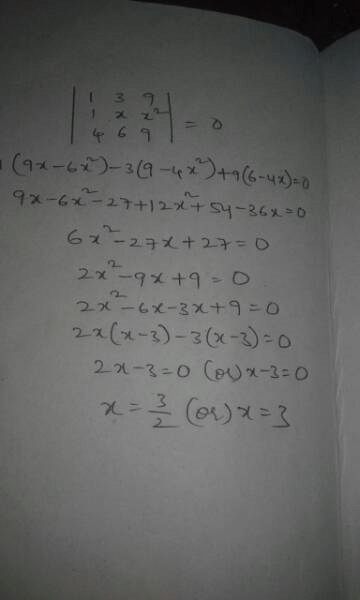 | 1 3 9 |
| 1 x x² | = 0
| 4 6 9 |
1(9x-6x²)-3(9-4x²)+9(6-4x)=0
9x-6x²-27+12x²+54-36x=0
6x²-27x+27=0
2x²-9x+9=0
2x²-6x-3x+9=0
2x(x-3)-3(x-3)=0
2x-3=0 (or) x-3=0
x=3/2 (or) x=3